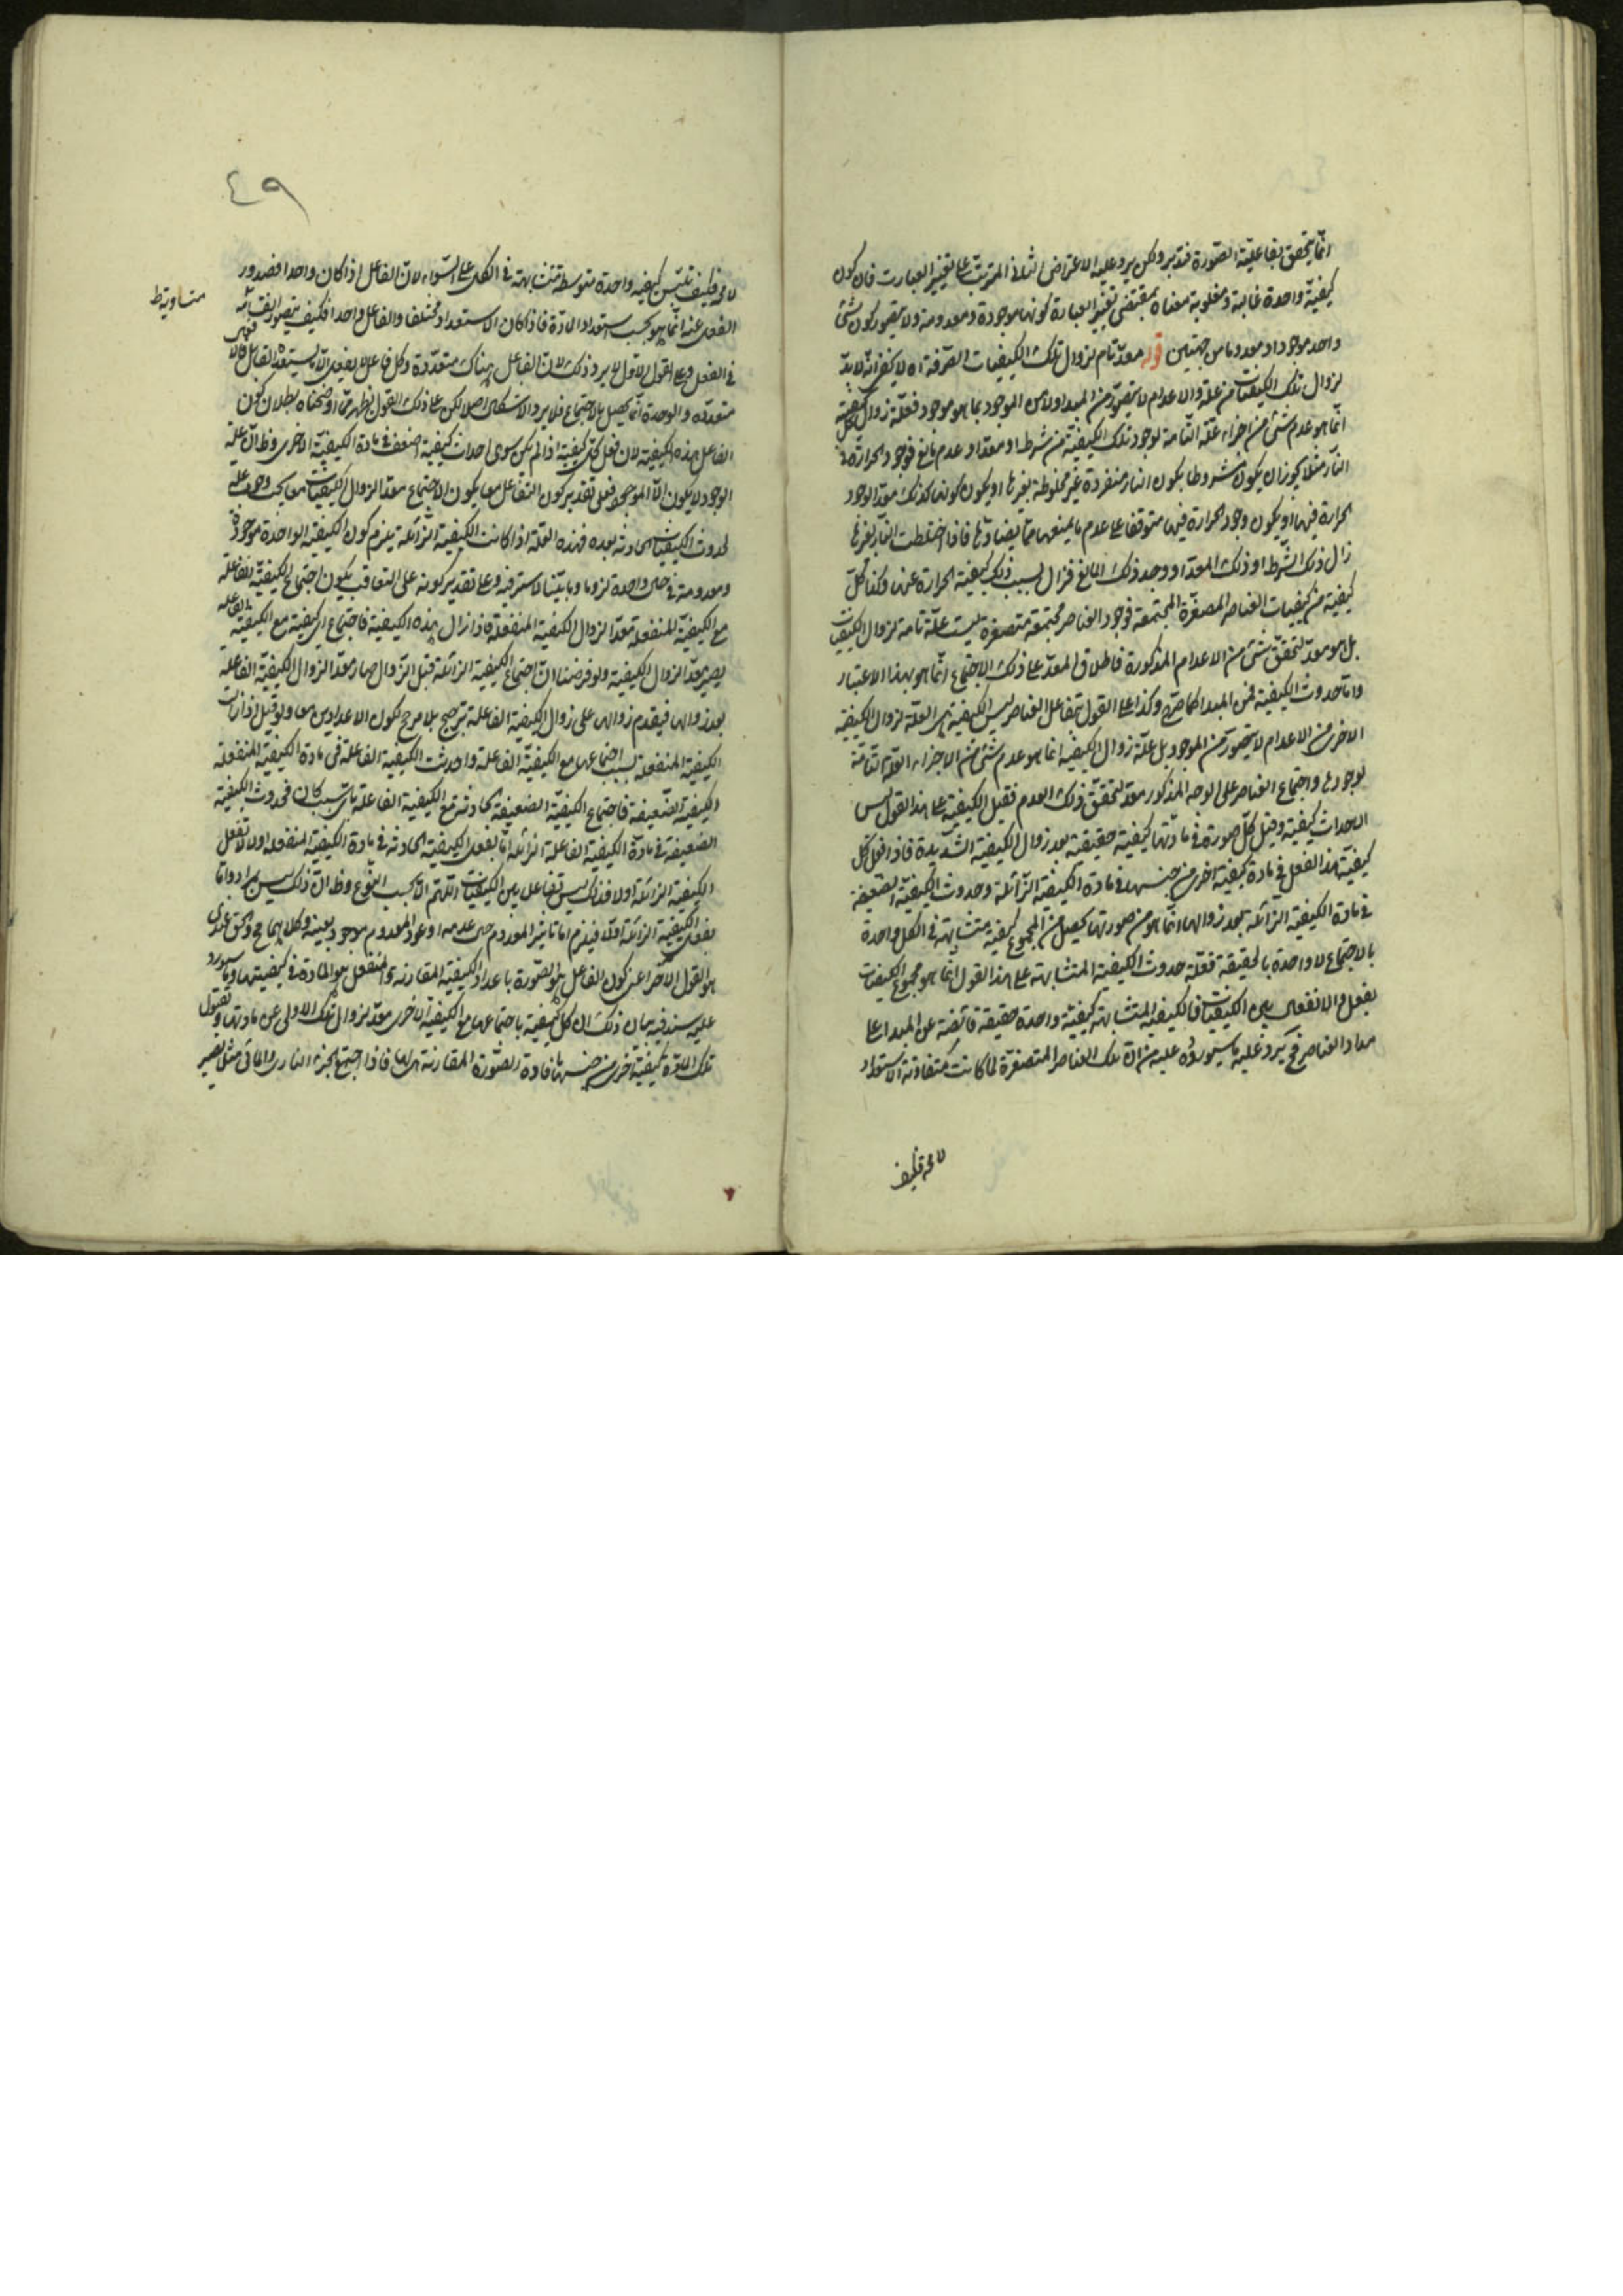 انما يتحقق بفاعلية الصورة فتدبر ولكن يرد عليه الاعتراض الثانى المترتب على تغيير العبارت فان كون
كيفية واحدة غالبة ومغلوبة معناه بمقتضى تغيير العبارة كونها موجودة ومعدومة ولا يتصور كون شئ
واحد موجودا ومعدوما من جهتين قوله معد تام لزوال تلك الكيفيات الصرفة اه لا يخفى انه لا بد
لزوال تلك الكيفيات من علة والاعدام لا يتصور من المبدا ولا من الموجود بما هو موجود فعلة زوال كل كيفية
انما هو عدم شئ من اجزاء علته التامة لوجود تلك الكيفية من شرط او معد او عدم مانع فوجود الحرارة فى
النار مثلا يجوز ان يكون مشروطا بكون النار منفردة غير مخلوطة بغيرها او يكون كونها كذلك معدا لوجود
الحرارة فيها او يكون وجود الحرارة فيها متوقفا على عدم ما يمنعها مما يضادها فاذا اختلطت النار بغيرها
زال ذلك الشرط او ذلك المعد او وجد ذلك المانع فزال بسبب ذلك كيفية الحرارة عنها وكذا كل
كيفية من كيفيات العناصر المصغرة المجتمعة فوجود العناصر مجتمعة متصغرة ليست علة تامة لزوال الكيفيات
بل هو معد لتحقق شئ من الاعدام المذكورة فاطلاق المعد على ذلك الاجتماع انما هو بهذا الاعتبار
واما حدوث الكيفية فمن المبدا كما صرح وكذا على القول بتفاعل العناصر ليس الكيفية هى العلة لزوال الكيفية
الاخرى من الاعدام لا يتصور من الموجود بل علة زوال الكيفية انما هو عدم شئ من الاجزاء العلة التامة
لوجودها واجتماع العناصر على الوجه المذكور معد لتحقق ذلك العدم فقيل الكيفية على هذا القول ليس
الا حداث كيفية وقيل كل صورة فى مادتها كيفية حقيقية بعد زوال الكيفية الشديدة فاذا فعل كل
كيفية هذا الفعل فى مادة كيفية اخرى من جنسها فى مادة الكيفية الزائلة وحدوث الكيفية الضعيفة
فى مادة الكيفية الزائلة بعد زوالها انما هو من صورتها يحصل من المجموع كيفية متشابهة فى الكل واحدة
بالاجتماع لا واحدة بالحقيقة فعلة حدوث الكيفية المتشابهة على هذا القول انما هو مجموع الكيفيات
بفعل والانفعال بين الكيفيات فالكيفية المتشابهة كيفية واحدة حقيقة فائضة عن المبدا على
مواد العناصر فح يرد عليه ما سيورده عليه من ان تلك العناصر المتصغرة لما كانت متفاوتة الاستعداد
لا محة فكيف
٤٩
لا محة فكيف تلبس كيفية واحدة متوسطة متشابهة فى الكل على السواء لان الفاعل اذا كان واحدا فصدور
متساوية ظ
الفعل عنه انما هو بحسب استعداد المادة فاذا كان الاستعداد مختلفا والفاعل واحدا فكيف يتصور التشابه
فى الفعل وعلى القول الاول لا يرد ذلك لان الفاعل هناك متعددة وكل فاعل لا يفعل الا ما يستعده القابل
متعددة والوحدة انما يحصل بالاجتماع فلا يرد الاشكال اصلا لكن على ذلك القول يظهر مما اوضحناه بطلان كون
الفاعل هذه الكيفية لان فعل كل كيفية اذا لم يكن سوى احداث كيفية اضعف فى مادة الكيفية الاخرى وظ ان علة
الوجود لا يكون الا الموجود فعلى تقدير كون التفاعل معا يكون الاجتماع معدا لزوال الكيفيات معا يجب وجود علة
لحدوث الكيفيات الحادثة بعده فهذه العلة اذا كانت الكيفية الزائلة يلزم كون الكيفية الواحدة موجودة
ومعدومة فى حال واحدة لزوما وبابينا لا سترة فيه وعلى تقدير كونه على التعاقب يكون اجتماع الكيفية الفاعلة
مع الكيفية المنفعلة معدا لزوال الكيفية المنفعلة فاذا زال هذه الكيفية فاجتماع اى كيفية مع الكيفية الفاعلة
يصير معدا لزوال الكيفية ولو فرضنا ان اجتماع الكيفية الزائلة قبل الزوال صار معدا لزوال الكيفية الفاعلة
بعد زوالها فيقدم زوالها على زوال الكيفية الفاعلة ترجيح بلا مرجح لكون الاعدادين معا ولو قيل اذا زالت
الكيفية المنفعلة بسبب اجتماعها مع الكيفية الفاعلة واحدثت الكيفية الفاعلة فى مادة الكيفية المنفعلة
الكيفية الضعيفة فاجتماع الكيفية الضعيفة الحادثة مع الكيفية الفاعلة باى سبب كان فحدوث الكيفية
الضعيفة فى مادة الكيفية الفاعلة الزائلة اما بفعل الكيفية الحادثة فى مادة الكيفية المنفعلة اولا او بفعل
الكيفية الزائلة اولا فذلك ليس تفاعل بين الكيفيات اللهم الا بحسب النوع وظ ان ذلك ليس بمراد واما
بفعل الكيفية الزائلة اولا فيلزم اما تاثير المعدوم حال عدمه او عود المعدوم موجود بعينه وكلاهما مح والحق عندى
هو القول الاخر اعنى كون الفاعل هو الصورة باعداد الكيفية المقارنة والمنفعل هو المادة فى كيفيتها وما سيورد
عليه سندفعه بيان ذلك ان كل كيفية باجتماعها مع الكيفية الاخرى معد لزوال تلك الاولى عن مادتها ولقبول
تلك المادة كيفية اخرى من جنسها فادة الصورة المقارنة لها فاذا اجتمع الجزء النارى والمائى مثلا يصير